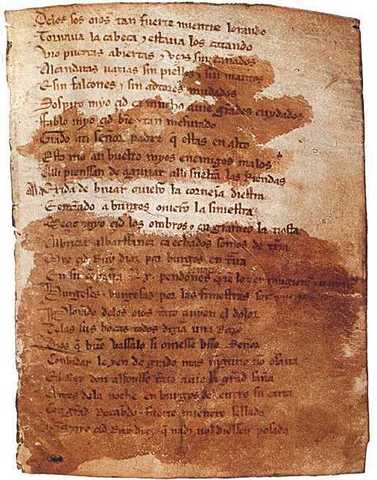 Delos sos oios tan fuerte mientre lorando
Tornaua la cabeça ⁊ estaua los catando
Vio puertas abiertas ⁊ vços sin cañados
Alcandaras uazias sin pielles ⁊ sin mantos
E sin falcones ⁊ sin adtores mudados
Sospiro myo çid ca mucho auie grādes cuydados
Fablo myo çid bie ⁊ tan mesurado
Grado ati señor padre q̄ estas en alto
Esto me an buelto myos enemigos malos
Alli pienssan de aguiiar alli suelta las Riendas
Ala Exida de biuar ouierō la corneia diestra
E entrādo a burgos ouierō la siniestra
Meçio myo çid los ombros ⁊ en grameo la tiesta
Albricia albarffanez ca echados somos de tr̄a
Myo çid Ruy diaz por burgos en
En su conpaña .Lx. pendones leuaua
Burgeses ⁊ burgesas por las finiestras son
Plorādo delos oios tāto auyen el dolor
Delas sus bocas todos dizia una Razō
Dios q̄ buē vassalo si ouiesse buē Señor
Conbidar le yen de grado mas ninguno no osaua
El Rey don alfonsso tāto auie la grād saña
Antes dela noche en burgos del entro su carta
Con grād Recabdo ⁊ fuerte mientre sellada
Que a myo çid Ruy diaz q̄ nadi nol diessen posada